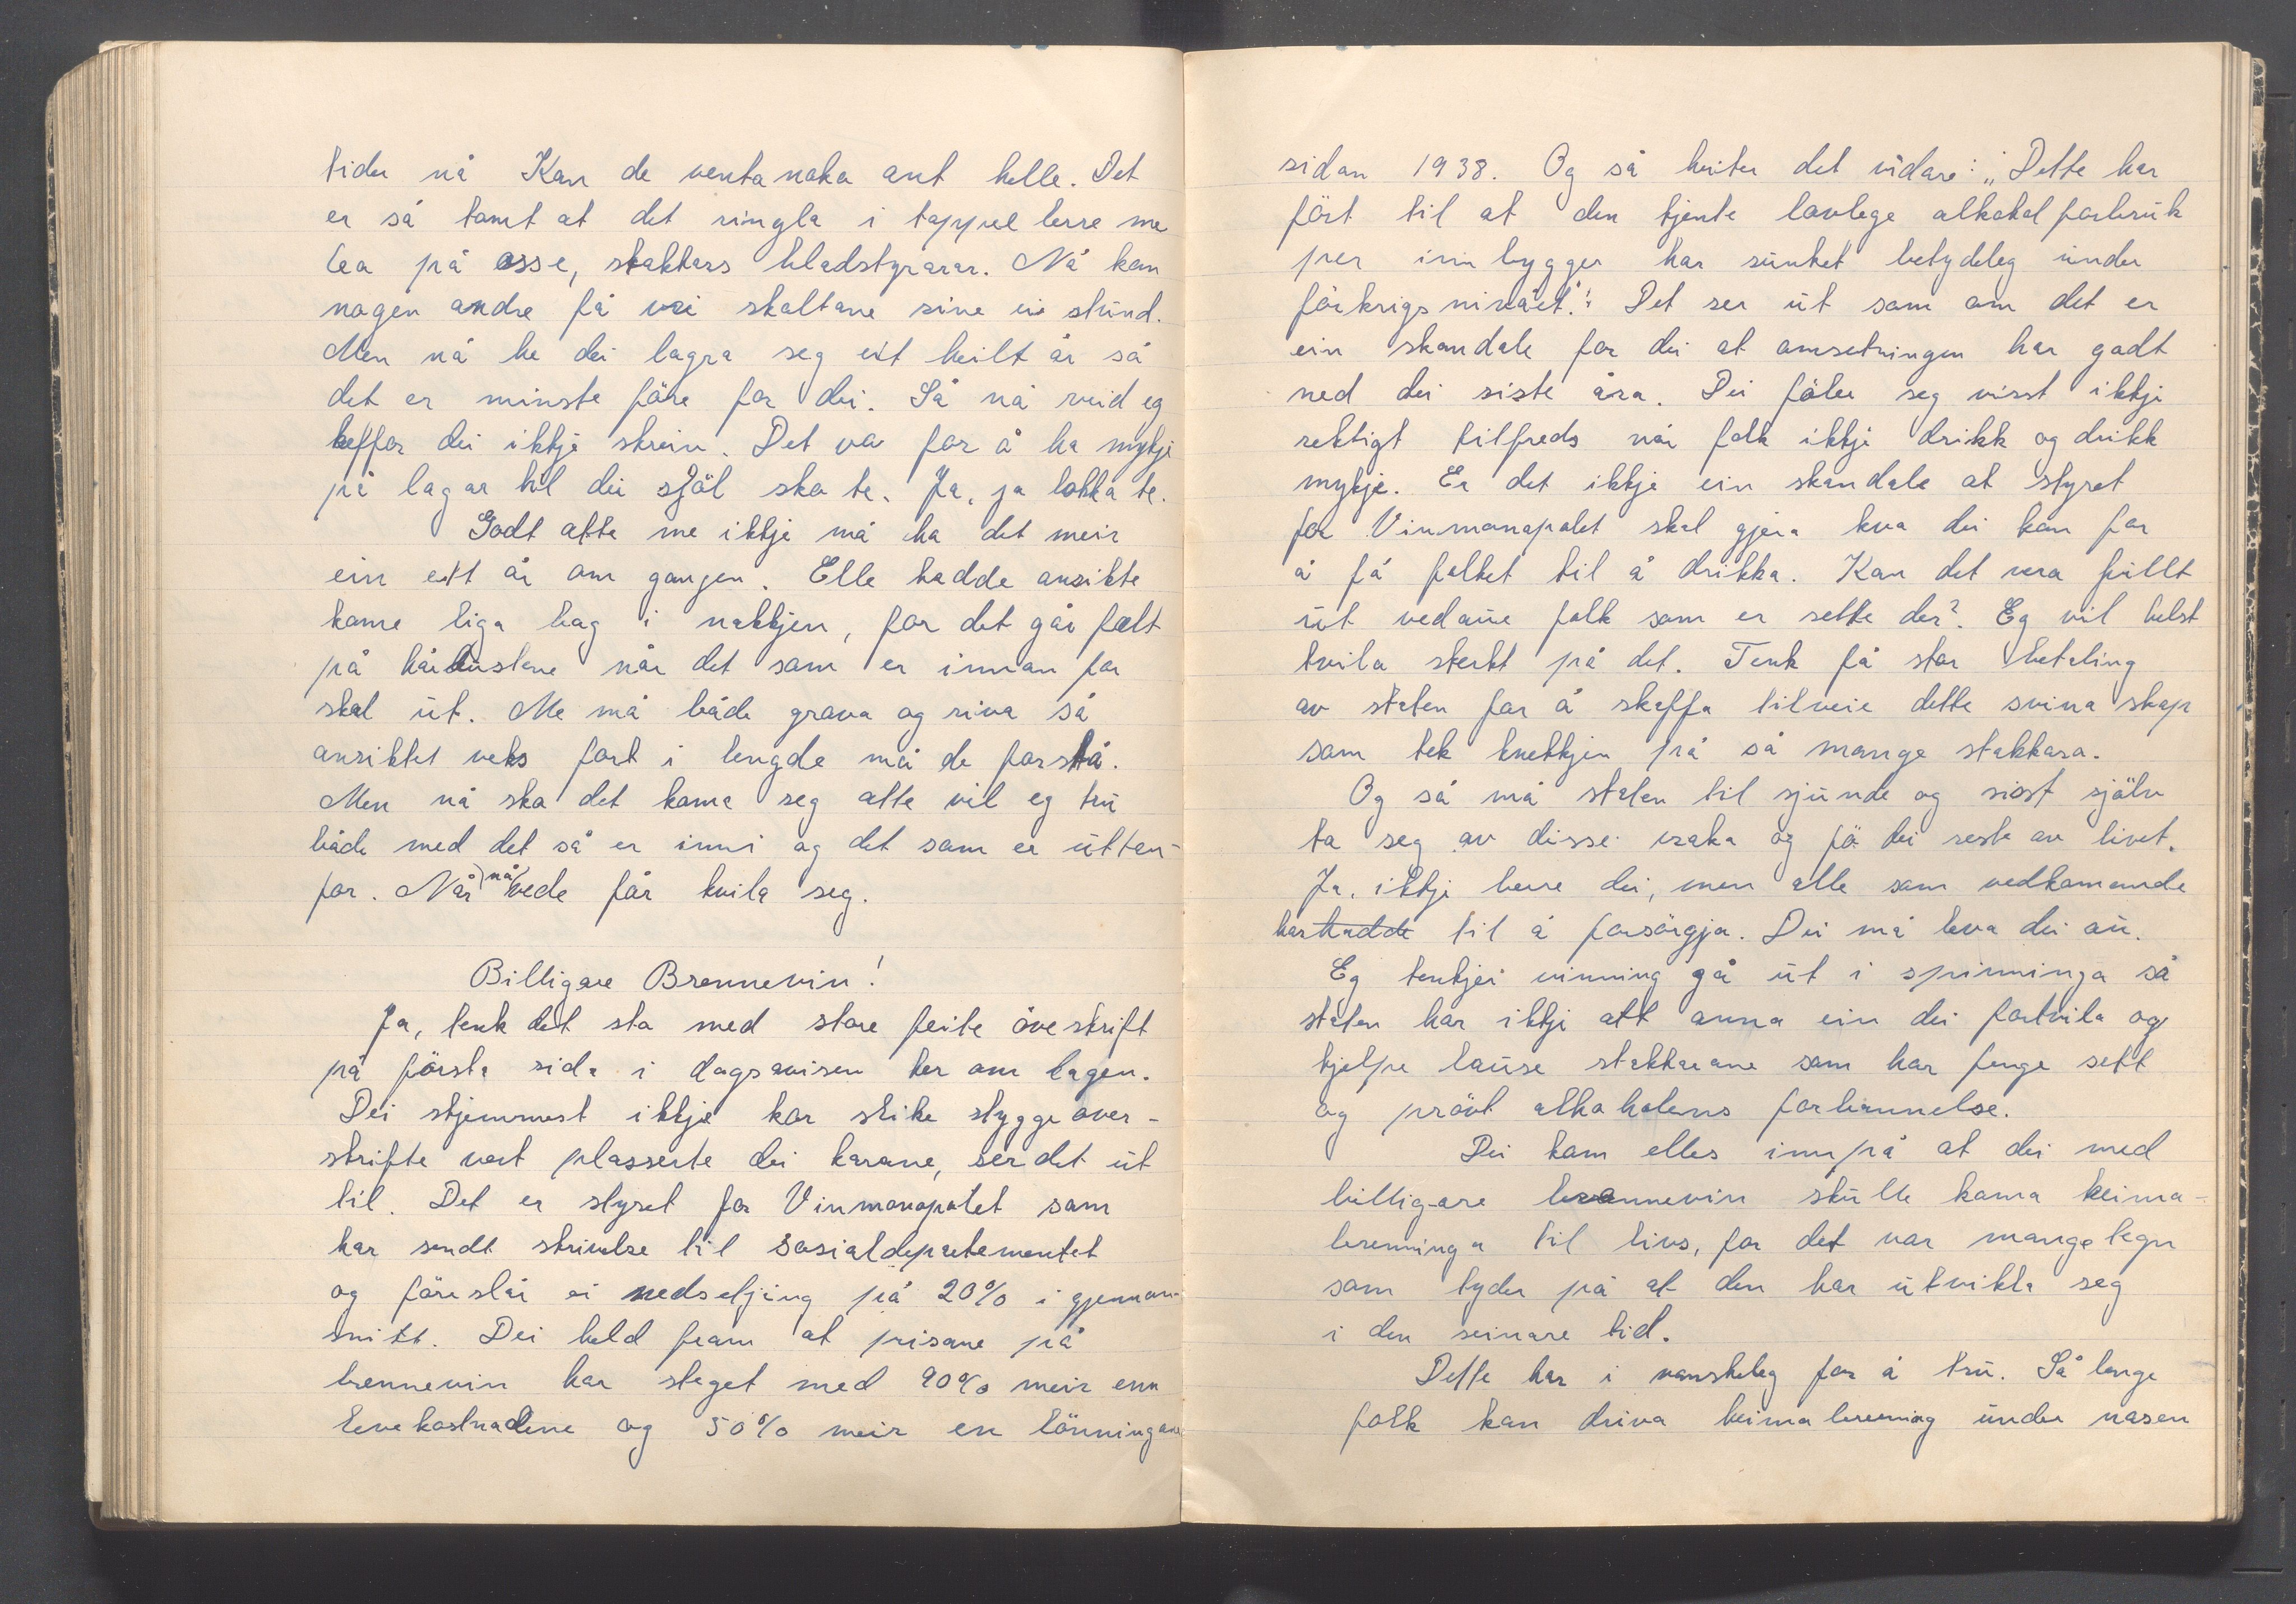 tider nå Kan de venta noko ant helle. Det
er så tomt at det ringla i toppve berre me
lea på osse, stakkars bladstyrarar. Nå kan
nogen andre få vri skaltane sine ei stund.
Men nå he dei lagra seg eit heilt år så
det er minste fåre for dei. Så nå veid eg
keffor dei ikkje skreiv. Det va for å ha mykje
på lagar til dei sjøl ska te. Ja, ja lokka te.
Godt atte me ikkje må ha det meir
ein eitt år om gangen. Elle hadde ansikte
kome liga bag i nakkjen, for det går fælt
på hårdustane når det som er innan for
skal út. Me må både grava og riva så
ansiktet veks fort i lengde må de forstå.
Men nå ska det koma seg atte vil eg trú
både med det så er inni og det som er útten-
for. Når nå vede får kvila seg.
Billigare Brennevin!
Ja, tenk det sto med store feite överskrift
på förste side i dagsavisen her om dagen.
Dei skjemmest ikkje kor slike stygge over-
skrifte vert plasserte dei karane, ser det út
til. Det er styret for Vinmonopolet som
har sendt skrivelse til Sosialdepartementet
og föreslår ei nedseljing på 20% i gjennom-
snitt. Dei held fram at prisane på
brennevin har steget med 90% meir enn
levekostnadene og 50% meir en lönningane
sidan 1938. Og så heiter det vidare: „Dette har
fört til at den kjente lovlege alkohol forbrúk
per innbygger har súnket betydeleg únder
förkrigsnivået". Det ser út som om det er
ein skandale for dei at omsetningen har gådt
ned dei siste åra. Dei föler seg visst ikkje
rektigt tilfreds når folk ikkje drikk og drikk
mykje. Er det ikkje ein skandale at styret
for Vinmonopolet skal gjera kva dei kan for
å få folket til å drikka. Kan det vera fúllt
út vedane folk som er sette der? Eg vil helst
tvila sterkt på det. Tenk få stor betaling
av staten for å skaffa tilveie dette svina skap
som tek knekkjen på så mange stakkara.
Og så må staten til sjúnde og sisst själv
ta seg av disse vraka og fö dei reste av livet.
Ja, ikkje berre dei, men alle som vedkomande
har hadde til å forsörgja. Dei må leva dei aú.
Eg tenkjer vinning gå út i spinninga så
staten har ikkje att anna ein dei fortvila og
hjelpe laúse stakkarane som har fenge sett
og prövt alkoholens forbannelse.
Dei kom elles innpå at dei med
billigare brennevin skúlle koma heima-
brenninga til livs, for det var mange tegn
som tyder på at den har útvikla seg
i den seinare tid.
Dette har i vanskeleg for å trú. Så lenge
folk kan driva heimabrenning únder nasen